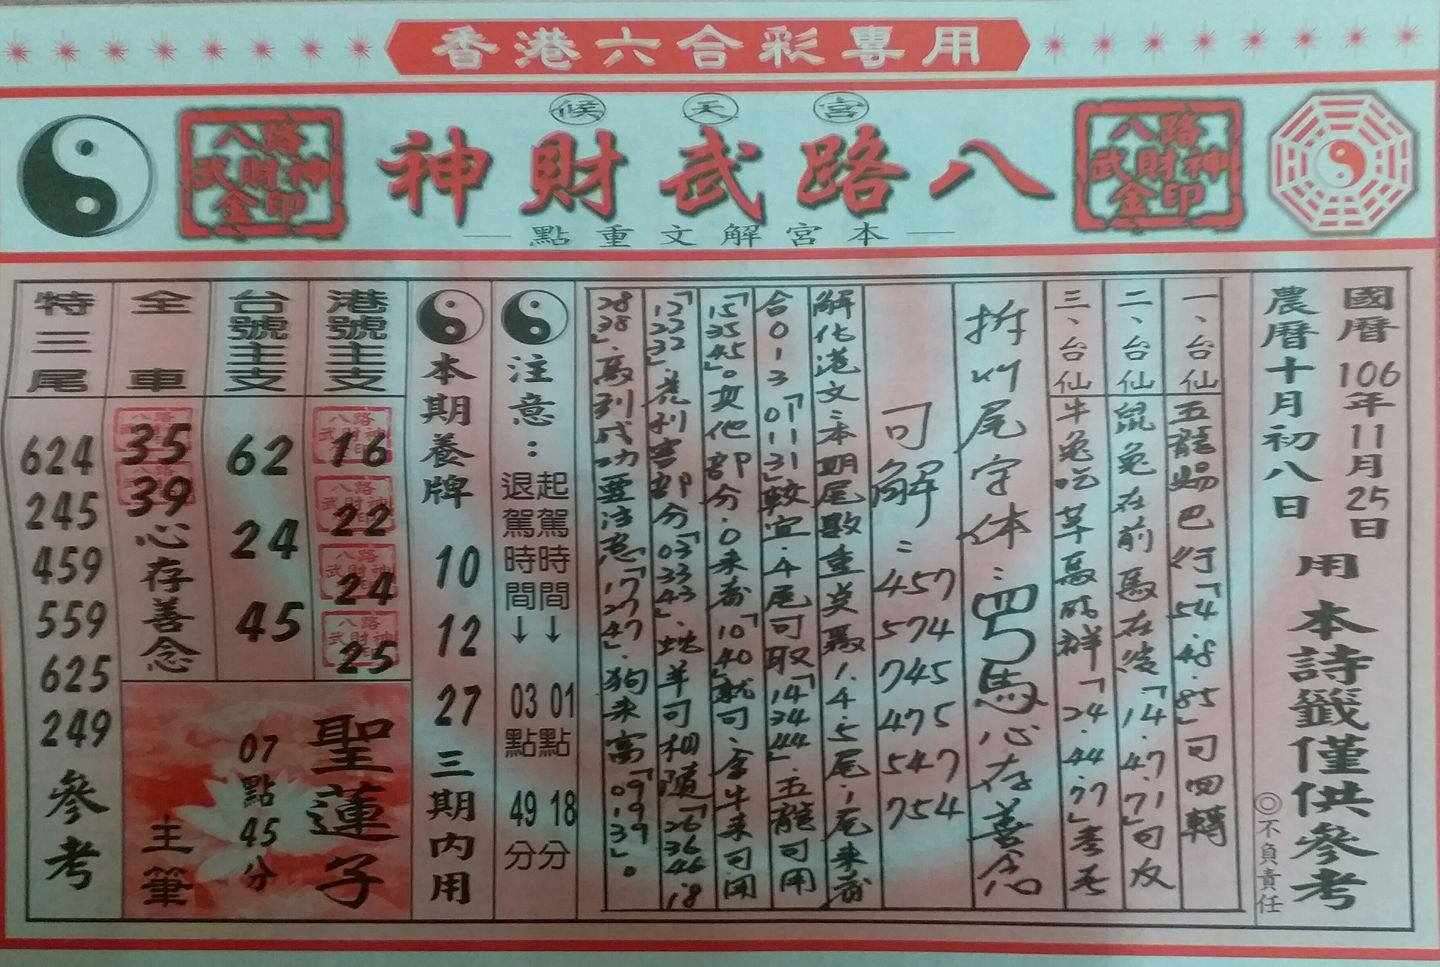 香港六合彩專用
候天宮
八路武財神
八路武財神金印
八路武財神金印
本宮解文重點
國曆106年11月25日
農曆十月初八日
用本詩籤僅供參考
◎不負責任
一、台仙 五龍 巴行「54.48.85」可四轉
二、台仙 鼠兔在前馬在後「14.47.71」可反
三、台仙 牛兔吃草馬 群「24.44.77」
拆以尾字体：四馬心存善念
可解：457 574 745 475 547 754
解化港文：本期尾數重 1.4.5尾.1尾來
合013「01 11 31」較宜.4尾可取「14 34 44」.五龍可用
「15 35 45」。其他部分.0來看「10 40」就可.金牛來可用
「13 23 32」.先利害部分「03 33 43」.蛇羊可相隨「26 36 46」.8
「28 38」.馬到成功要注意「17 27 47」.狗來 「09 19 39」。
注意：
起駕時間↓01點18分
退駕時間↓03點49分
本期養牌 10 12 27 三期內用
港號主支
16
22
24
25
台號主支
62
24
45
全車
35
39
心存善念
特三尾
624
245
459
559
625
249
參考
聖蓮子
07點45分
主筆